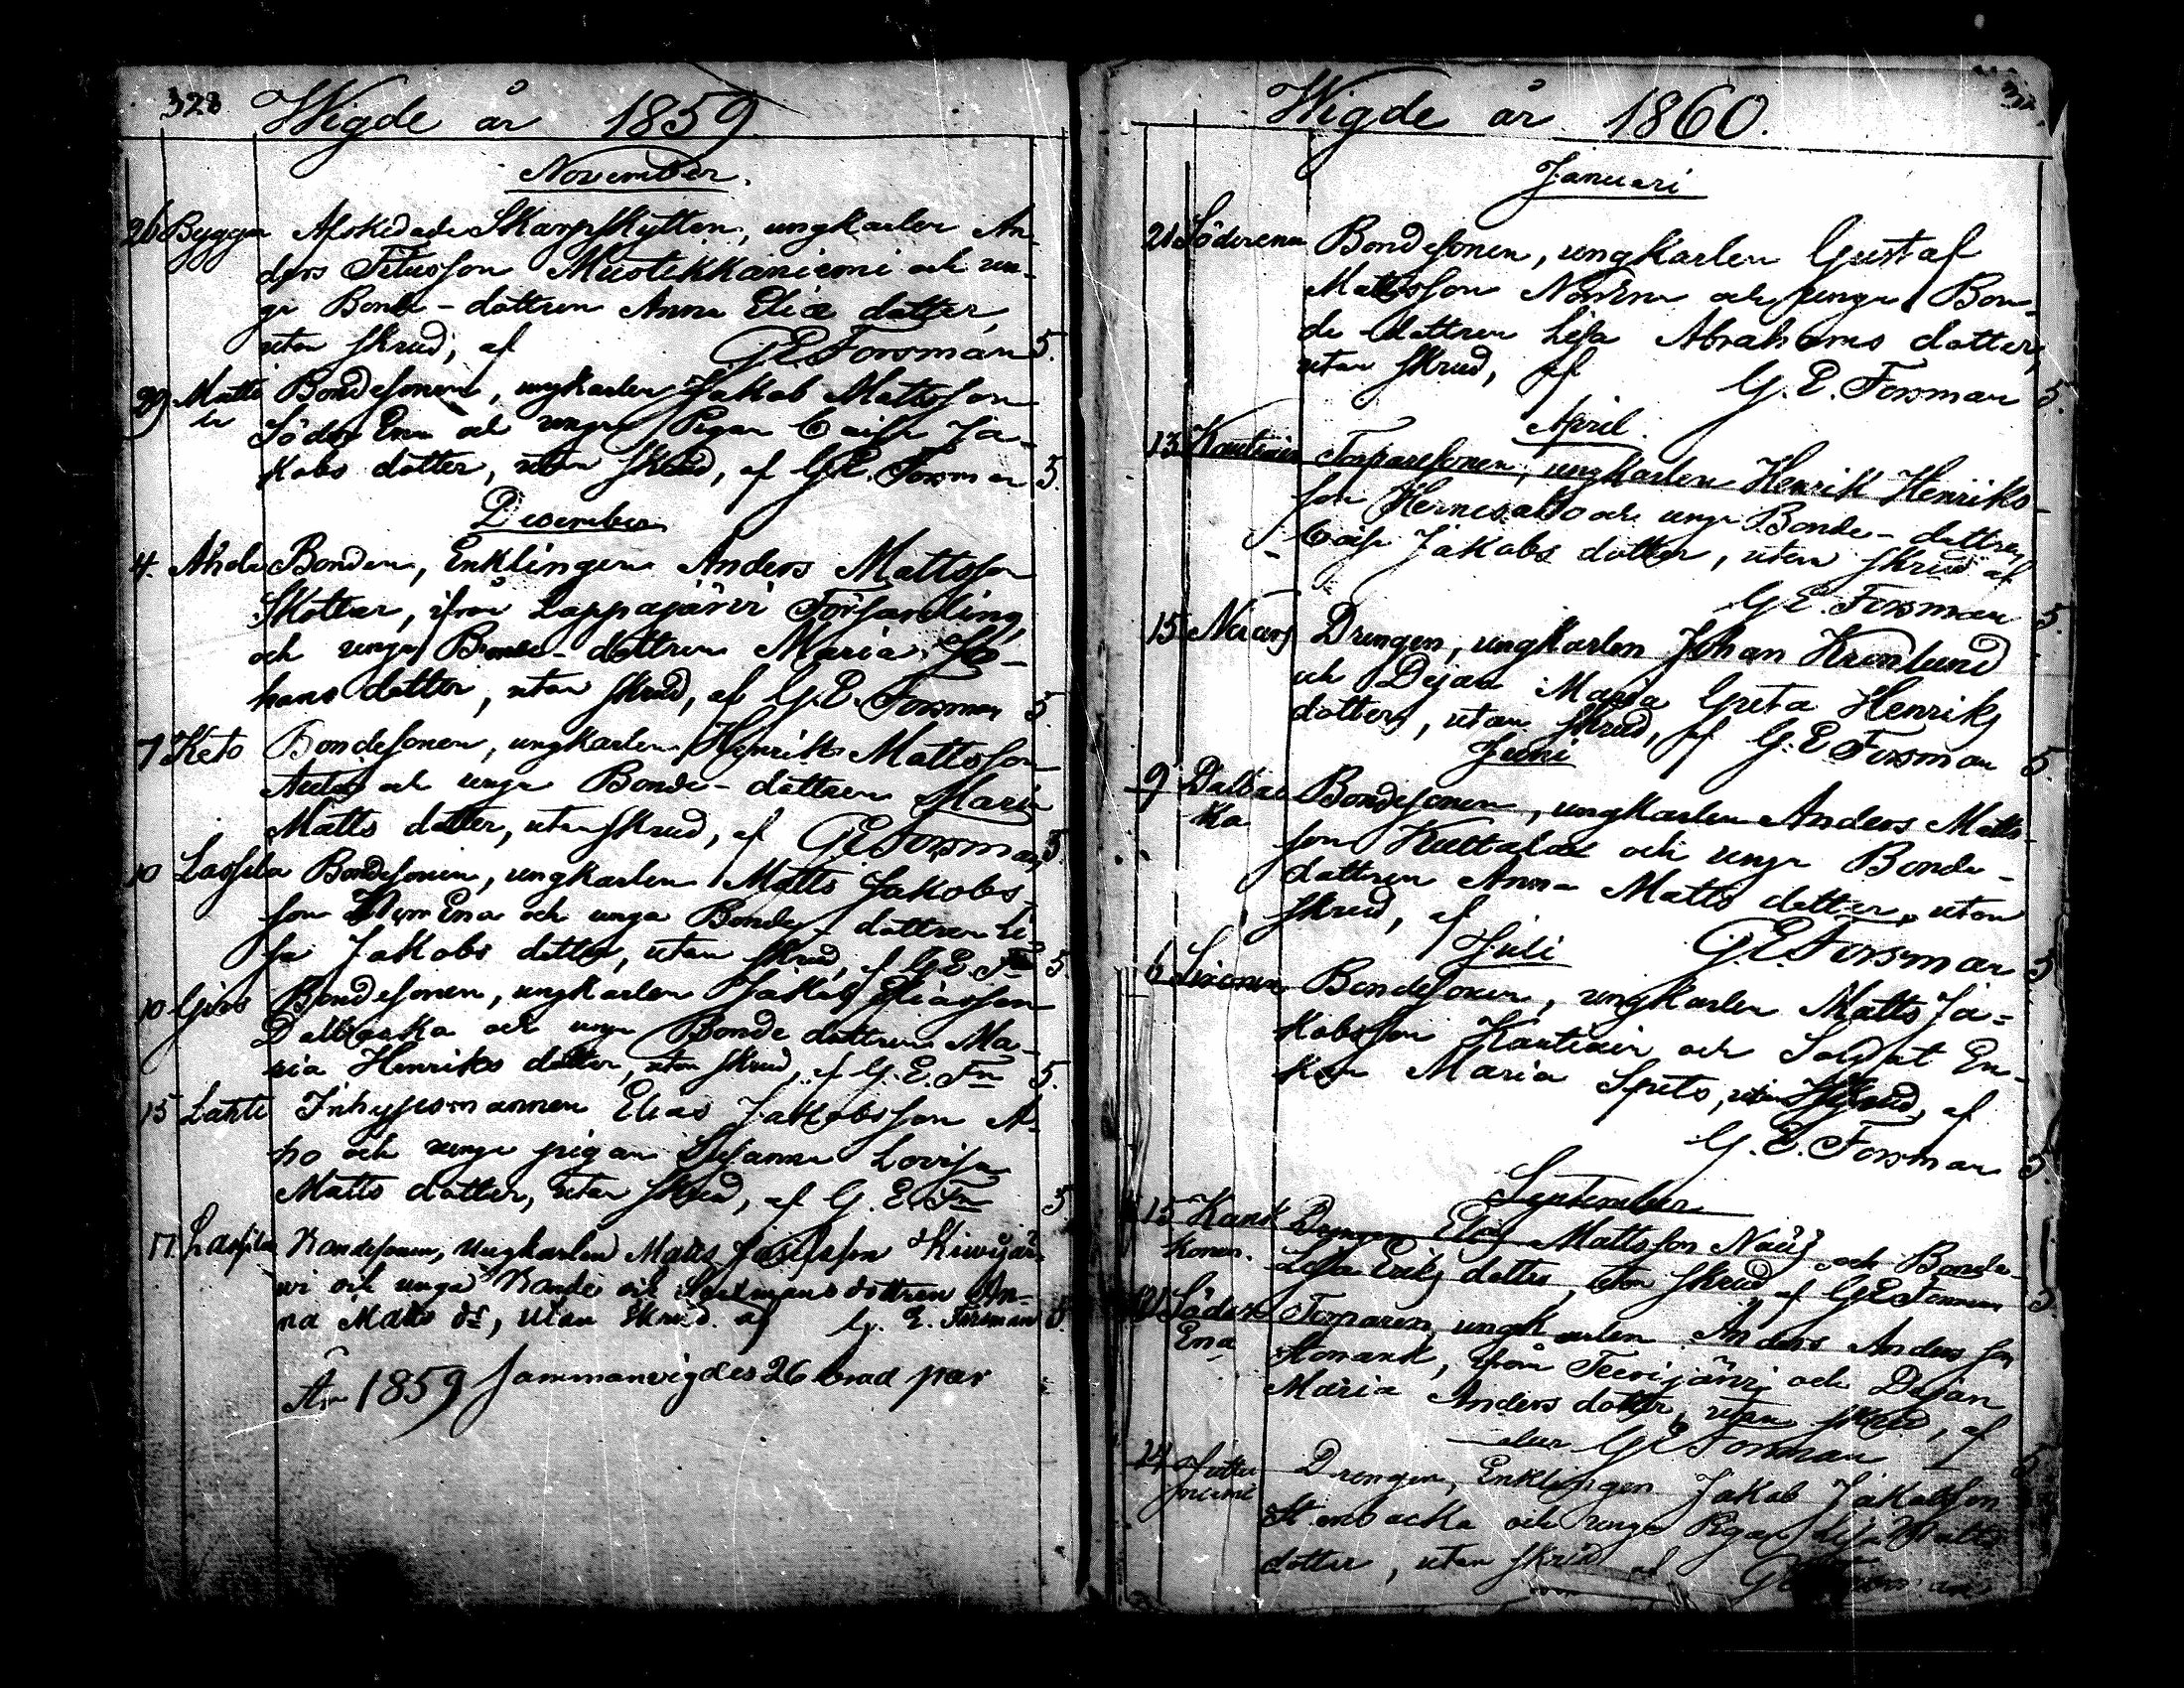 328
Wigde år 1859
November.
26 Byggar Afskedade Skarpskytten, ungkarlen An-
ders Titusson Mustikkaniemi och un-
ga Bonde-dottren Anna Eliæ dotter,
utan skrud, af G E Forsman 5.
29 Matti Bondesonen, ungkarlen Jakob Mattsson
la Söder Ena och unga Pigan Caisa Ja-
kobs dotter, utan skrud, af G E. Forsman 5.
December
4. Ahola Bonden, Enklingen Anders Mattsson
Skottar, ifrån Lappajärvi Församling,
och unga Bonde-dottren Maria Jo-
hans dotter, utan skrud, af G. E. Forsman 5.
7 Keto Bondesonen, ungkarlen Henrik Mattsson
och unga Bonde-dottren Maria
Matts dotter, utan skrud, af G E Forsman 5.
10 Lassila Bondesonen, ungkarlen Matts Jakobs-
son Ena och unga Bonde-dottren Li-
sa Jakobs dotter, utan skrud, af G E. Fn 5.
10 Gers Bondesonen, ungkarlen Jakob Eliasson
Dalbacka och unga Bonde dottren Ma-
ria Henriks dotter, utan skrud, af G. E. Fn 5.
15 Lahti Inhysesmannen Elias Jakobsson A-
ho och unga pigan Susanna Lovisa
Matts dotter, utan skrud, af G. E. Fn 5
17 Lassila Bondesonen, Ungkarlen Matts Josefsson Kiwijär-
wi och unga Bonde och dottren An-
na Matts dr, utan Skrud. af G. E. Forsman 8.
År 1859 sammanvigdes 26 brud par
Wigde år 1860.
Januari
21 Söderena Bondesonen, ungkarlen Gustaf
Mattsson och unga Bon-
de-dottren Lisa Abrahams dotter,
utan skrud, af G. E. Forsman 5.
April.
13 Kautiain Torparesonen, ungkarlen Henrik Henriks-
son Hernesaho och unga Bonde-dottren
Caisa Jakobs dotter, utan skrud af
G E. Forsman 5.
15 Drengen, ungkarlen Johan Kronlund
och Dejan Maria Greta Henriks
dotter, utan skrud, af G. E Forsman 5.
Juni
9 Dalbac Bondesonen, ungkarlen Anders Matts-
ka son Kattalax och unga Bonde-
dottren Anna Matts dotter, utan
skrud, af G. E Forsman 5
Juli
6 Bondesonen, ungkarlen Matts Ja-
kobsson Kautiain och Soldat En-
kan Maria Spets, utan skrud, af
G. E. Forsman 5.
September
15 Kank Drengen Elias Mattsson och Bonde-
konen. Lisa Eriks dotter, utan skrud, af G E Forsman 5
21 Söder Torparen, ungkarlen Anders Anders son
Ena Storank, ifrån Teerijärvi och Dejan
Maria Anders dotter, utan skrud, af
G E Forsman 5
24 Drengen, Enklingen Jakob Jakobsson
Stenbacka och unga Pigan Lisa Matts
dotter, utan skrud af G E Forsman